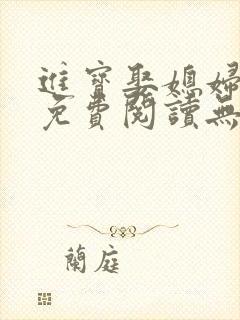 進寶娶媳婦
免費閱讀無
蘭庭